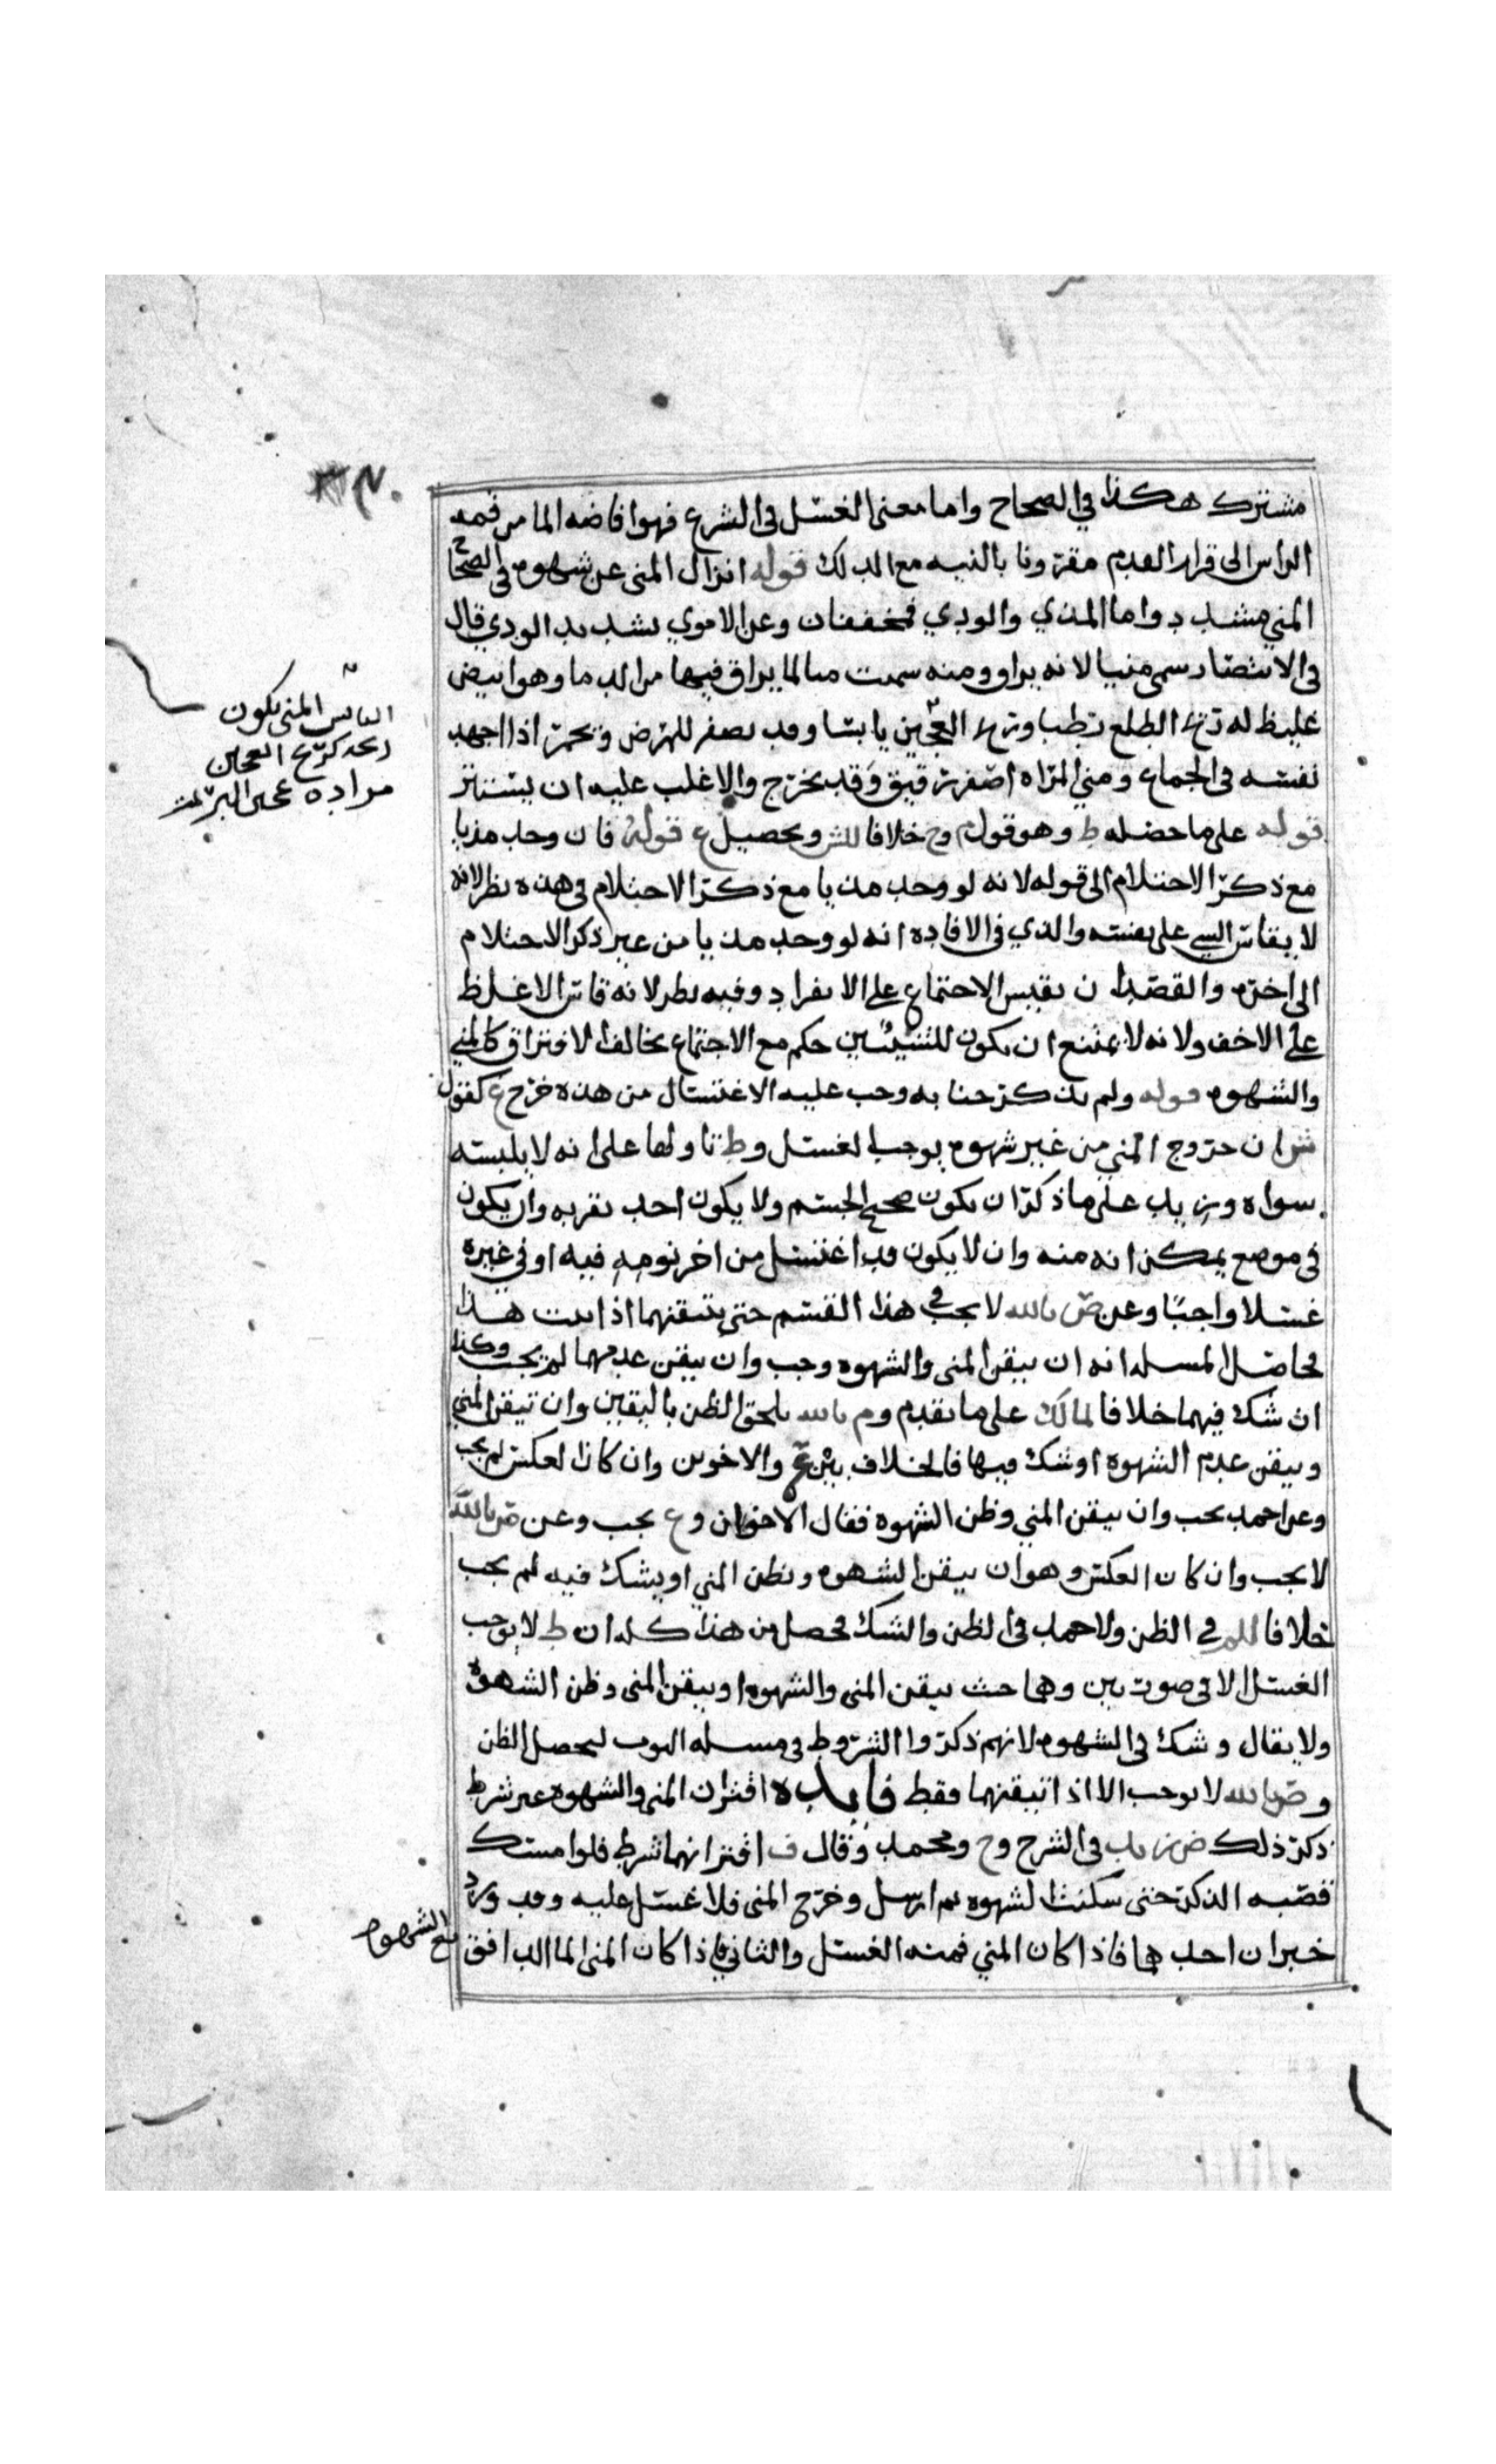 مشترك هكذا في الصحاح واما معنى الغسل في الشرع فهو افاضه الما من قمه
الراس الى قرار القدم مقرونا بالنيه مع الدلك قوله انزال المني عن شهوه في الصحاح
المني مشدد واما المذي والودي فمخففان وعن الاموي تشديد الودي قال
في الانتصار سمي منيا لانه يراق ومنه سميت منا لما يراق فيها من الدما وهو ابيض
غليظ له ريح الطلع رطبا وريح العجين يابسا وقد يصفر للمرض ويحمر اذا اجهد
نفسه في الجماع ومني المراه اصفر رقيق وقد يخرج والاغلب عليه ان يستتر
قوله على ما حصله ط وهو قول م وح خلافا للش وتحصيل ع قوله فان وجد مذيا
مع ذكر الاحتلام الى قوله لانه لو وجد مذيا مع ذكر الاحتلام في هذه نظر لانه
لا يقاس الشي على نفسه والذي في الافاده انه لو وجد مذيا من غير ذكر الاحتلام
الى اخره والقصد ان نقيس الاجتماع على الانفراد وفيه نظر لانه قاس الاغلظ
على الاخف ولانه لا يمتنع ان يكون للشيئين حكم مع الاجتماع يخالف الافتراق كالمني
والشهوه قوله ولم يذكر جنابه وجب عليه الاغتسال من هذه خرج ع كقول
ش ان خروج المني من غير شهوه يوجب الغسل وط تاولها على انه لا يلبسه
سواه وزيد على ما ذكر ان يكون صحيح الجسم ولا يكون احد بقربه وان يكون
في موضع يمكن انه منه وان لا يكون قد اغتسل من اخر نومه فيه او في غيره
غسلا واجبا وعن ض بالله لا يجب في هذا القسم حتى يتيقنهما اذا ثبت هذا
فحاصل المسله انه ان تيقن المني والشهوه وجب وان تيقن عدمهما لم يجب وكذا
ان شك فيهما خلافا لمالك على ما تقدم وم بالله يلحق الظن باليقين وان تيقن المني
وتيقن عدم الشهوه او شك فيها فالخلاف بين ع والاخوين وان كان العكس لم يجب
وعن احمد يجب وان تيقن المني وظن الشهوه فقال الاخوان وع يجب وعن ض بالله
لا يجب وان كان العكس وهو ان تيقن الشهوه وظن المني او يشك فيه لم يجب
خلافا للم في الظن ولاحمد في الظن والشك فحصل من هذا كله ان ط لا يوجب
الغسل الا في صورتين وهما حيث تيقن المني والشهوه او تيقن المني وظن الشهوه
ولا يقال وشك في الشهوه لانهم ذكروا الشروط في مسله الثوب ليحصل الظن
وض بالله لا يوجب الا اذا تيقنهما فقط فايده اقتران المني والشهوه غير شرط
ذكر ذلك ض زيد في الشرح وح ومحمد وقال ف اقترانهما شرط فلو امسك
قصبه الذكر حتى سكنت الشهوه ثم ارسل وخرج المني فلا غسل عليه وقد ورد
خبران احدهما فاذا كان المني فمنه الغسل والثاني فاذا كان المني الما الدافق
مع الشهوه
اليابس المني يكون
ريحه كريح العجين
مراده عجين البر تمت